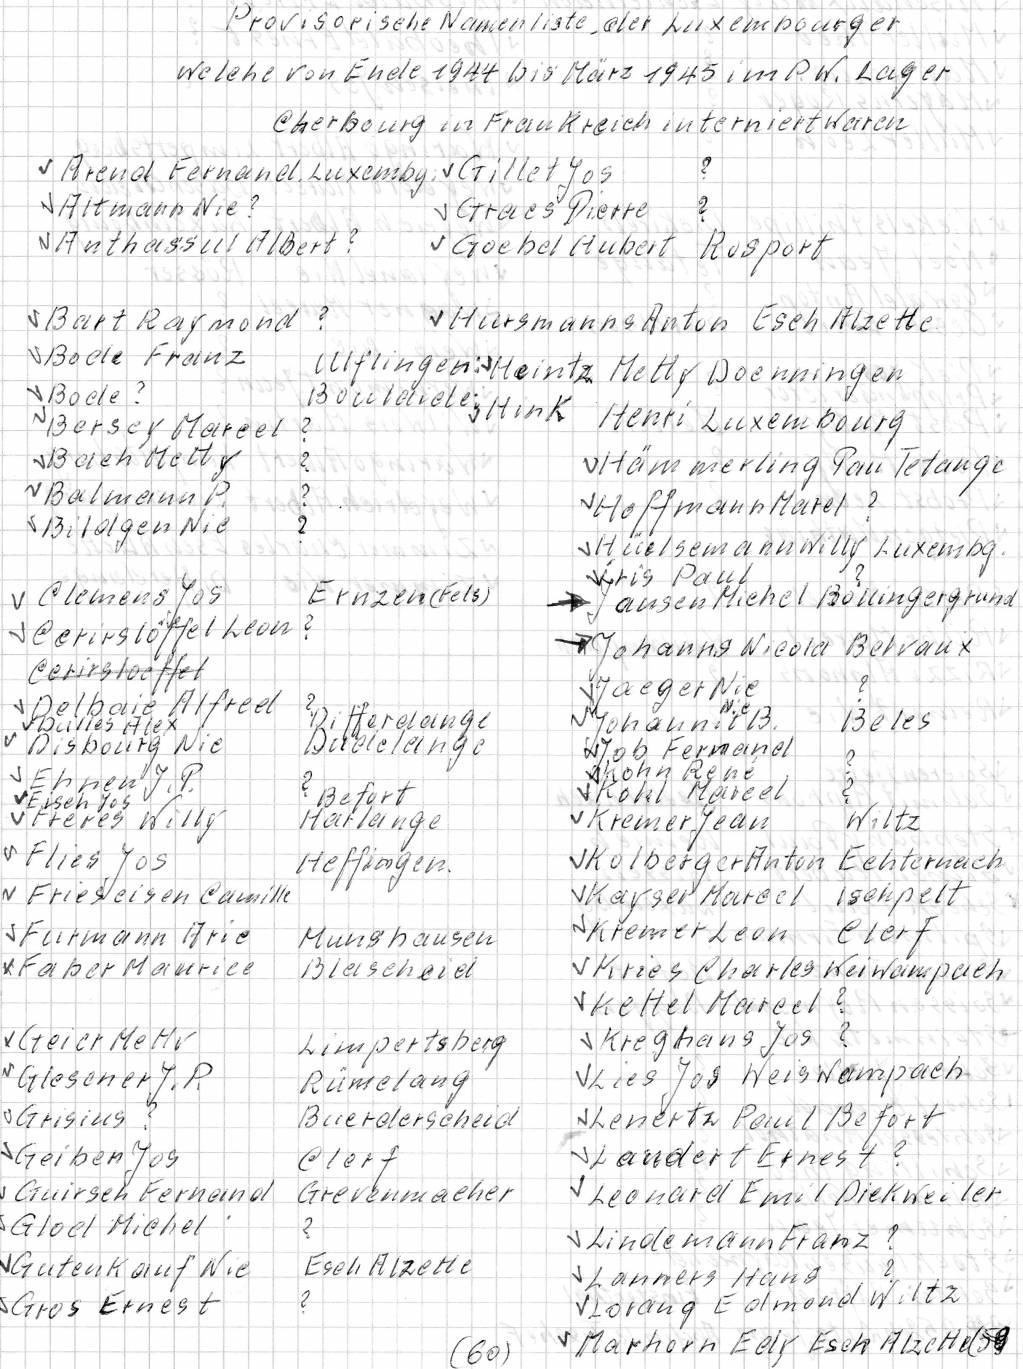 Provisorische Namenliste der Luxembourger
Welche von Ende 1944 bis März 1945 im P.W. Lager
Cherbourg in Frankreich interniert Waren
Arend Fernand. Luxembg.
Altmann Nic ?
Anthassul Albert ?
Bart Raymond ?
Bode Franz Ulflingen
Bode ?
Bersey Marcel ?
Bach Metty ?
Balmann P. ?
Bildgen Nic ?
Clemens Jos Ernzen (Fels)
Leon ?
Delbaie Alfred ?
Alex Differdange
Disbourg Nic Düdelange
Ehnen J.P. ?
Eisch Jos Befort
Freres Willy Harlange
Flies Jos Heffingen.
Frieseisen Camille
Furmann Arie Munshausen
Faber Maurice Blascheid
Geier Metty Limpertsberg
Glesener J.P. Rümelang
Grisius ? Buerderscheid
Geiben Jos Clerf
Guirsch Fernand Grevenmacher
Glod Michel ?
Gutenkauf Nic Esch Alzette
Gros Ernest ?
(60)
Gillet Jos ?
Graes Pierre ?
Goebel Hubert Rosport
Hursmanns Anton Esch Alzette
Heintz Metty Doenningen
Hink Henri Luxembourg
Hämmerling Pau Tetange
Hoffmann Marel ?
Hüelsemann Willy Luxembg.
Iris Paul ?
Jansen Michel Bollingergrund
Johanns Nicola Belvaux
Jaeger Nic ?
Nic
B. Beles
Job Fernand ?
Kohn René
Kohl Marcel ?
Kremer Jean Wiltz
Kolberger Anton Echternach
Kayser Marcel Ischpelt
Kremer Leon Clerf
Kries Charles Weiwampach
Kettel Marcel ?
Kreghans Jos ?
Lies Jos Weiswampach
Lenertz Paul Befort
Laudert Ernest ?
Leonard Emil Dickweiler
Lindemann Franz ?
Lanners Hans ?
Lorang Edmond Wiltz
Marhorn Edy Esch Alzette